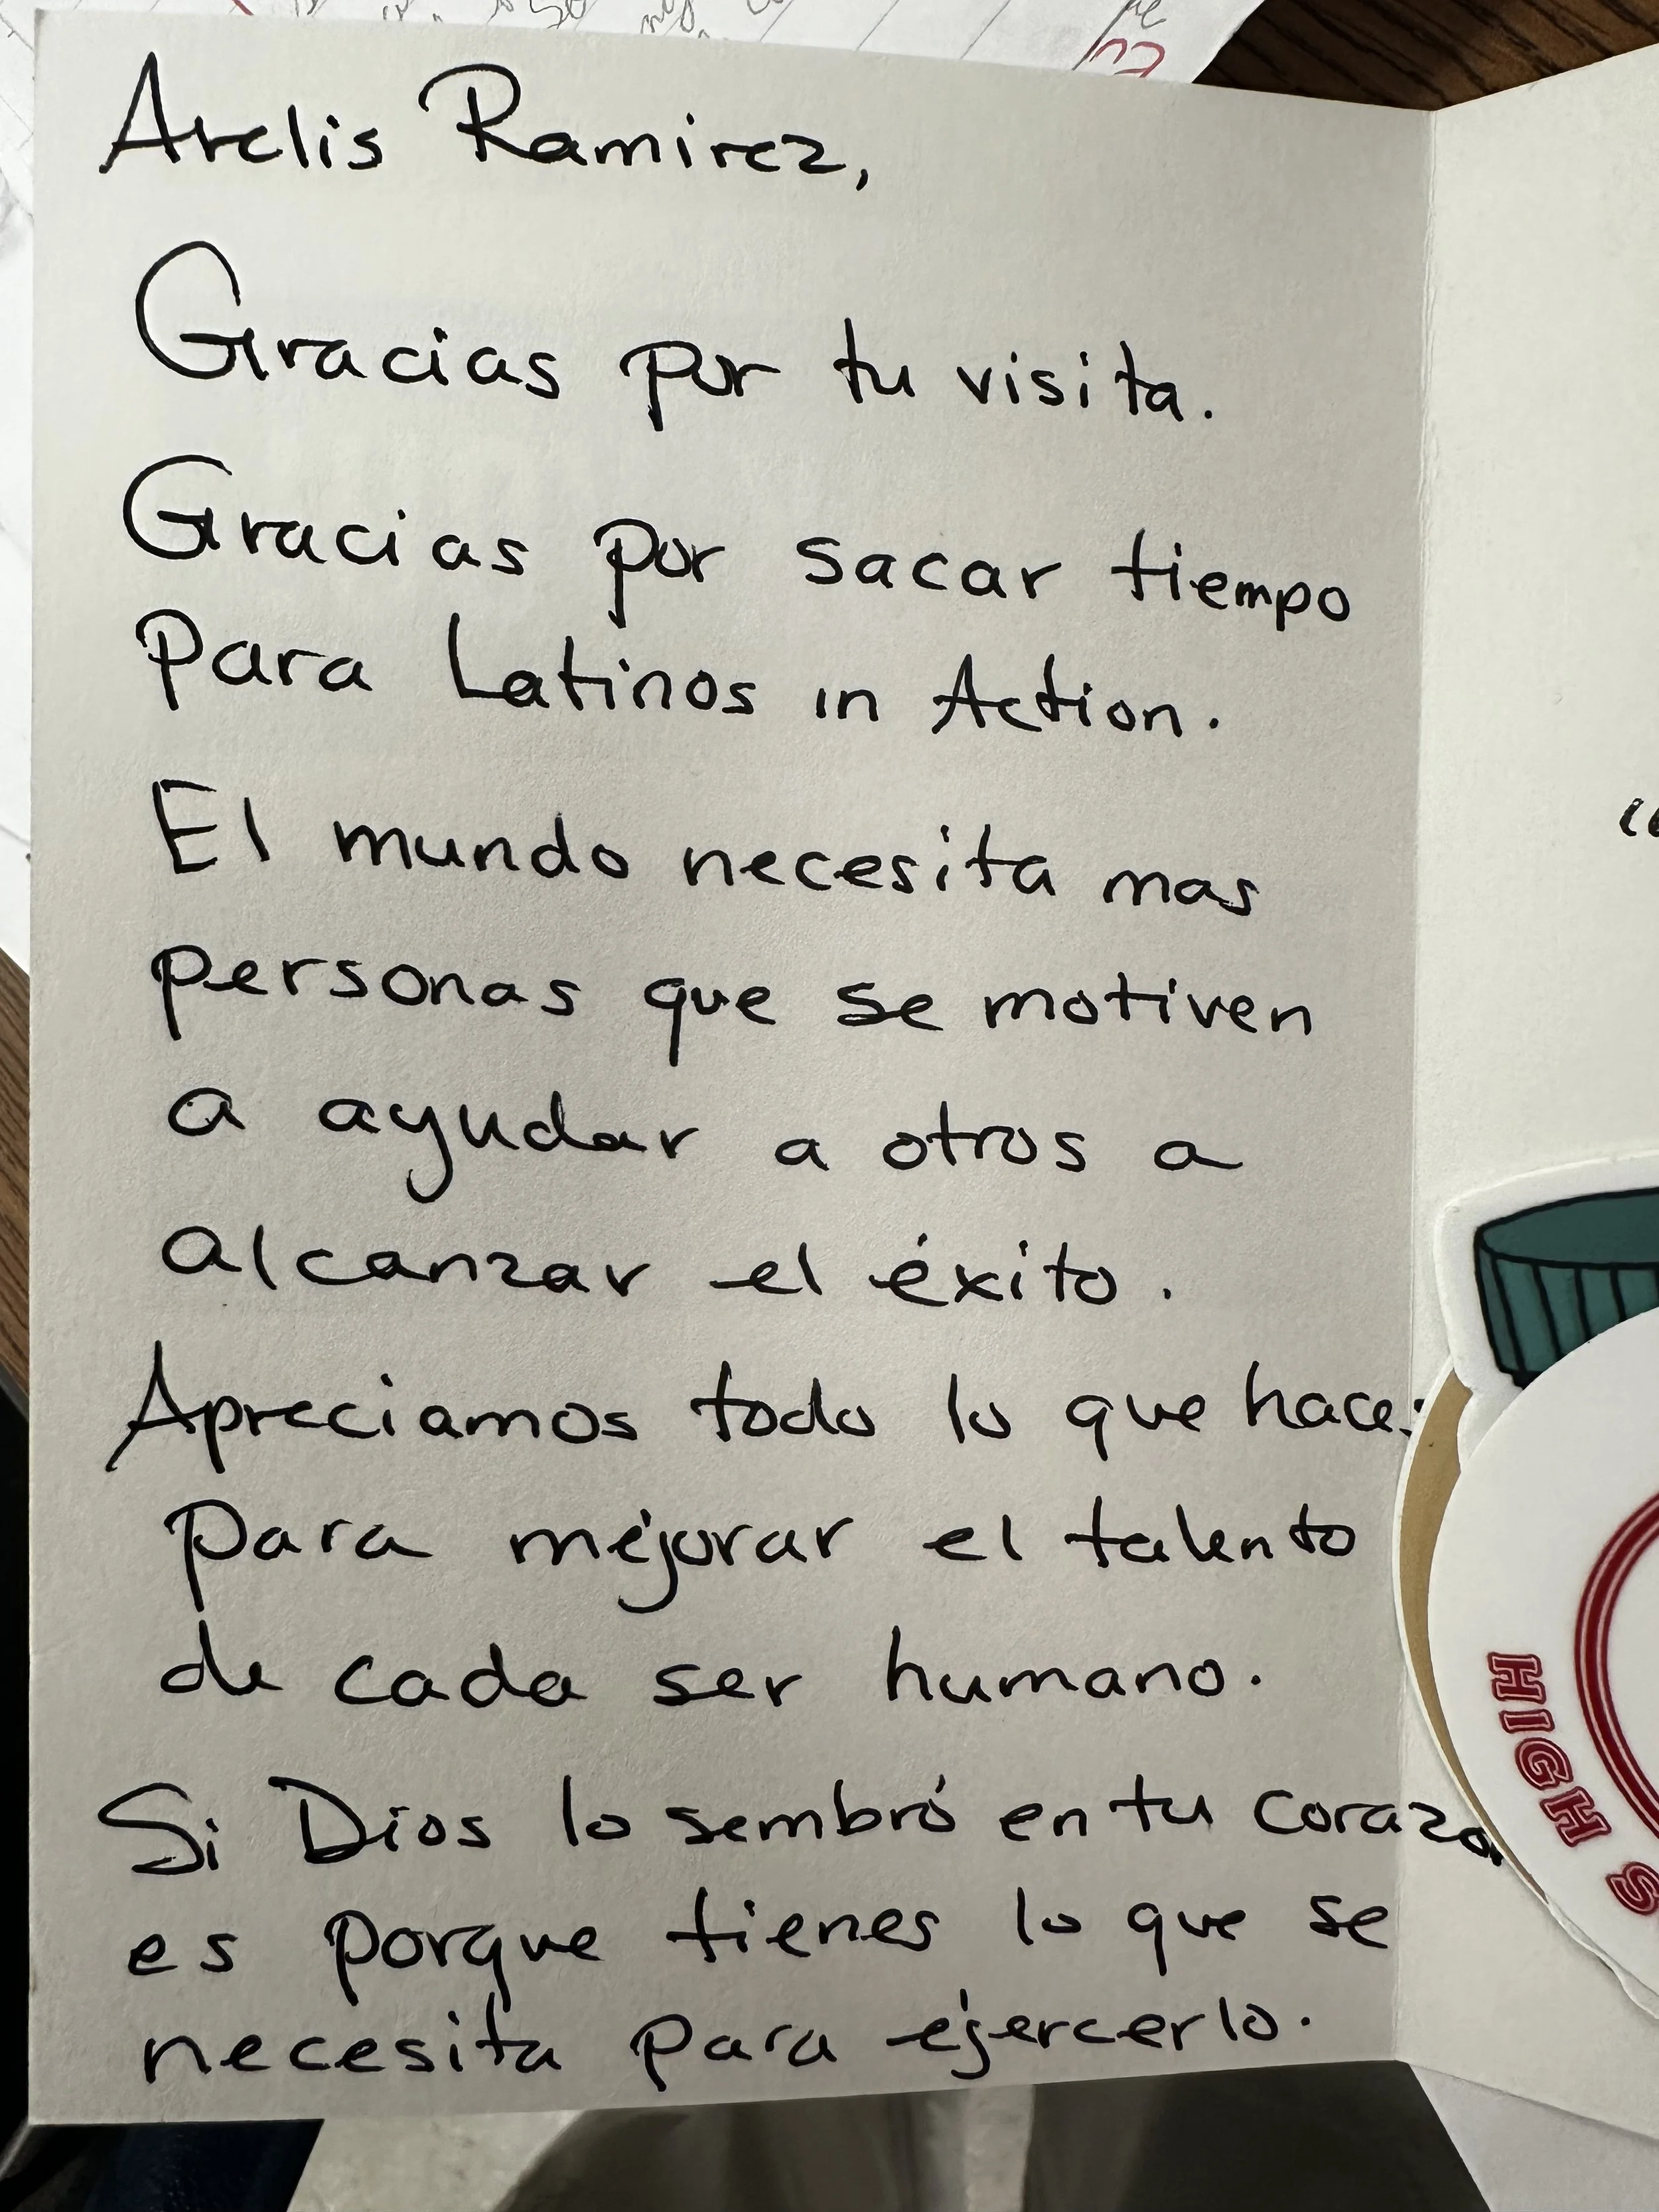 Arelis Ramirez,
Gracias por tu visita.
Gracias por sacar tiempo
para Latinos in Action.
El mundo necesita mas
personas que se motiven
a ayudar a otros a
alcanzar el éxito.
Apreciamos todo lo que haces
para mejorar el talento
de cada ser humano.
Si Dios lo sembró en tu corazon
es porque tienes lo que se
necesita para ejercerlo.
HIGH S